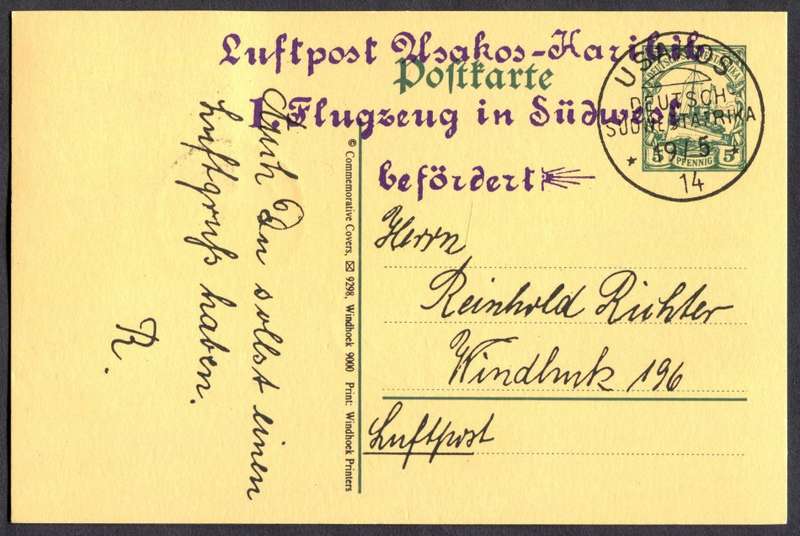 Luftpost Usakos-Karibib
Postkarte
I. Flugzeug in Südwest
befördert
USAKOS
DEUTSCH
SÜDWESTAFRIKA
19/5
14
5 PFENNIG 5
Herrn
Reinhold Richter
Windhuk 196
Luftpost
© Commemorative Covers, ✉ 9298, Windhoek 9000 Print: Windhoek Printers
Auch Du sollst einen
Luftgruß haben.
R.